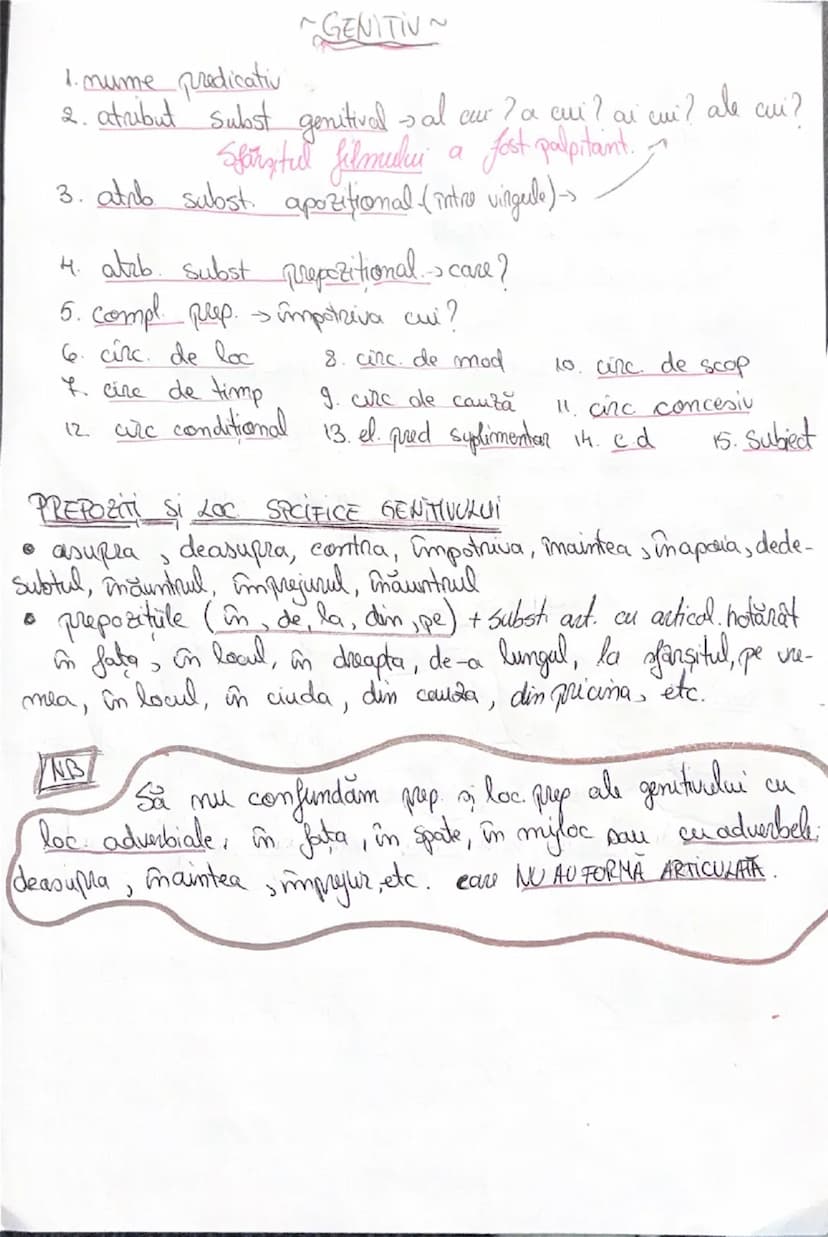 ~ GENITIV ~
1. nume predicativ
2. atribut subst genitival → al cui? a cui? ai cui? ale cui?
Sfârșitul filmului a fost palpitant.
3. atrb subst. apozițional (între virgule) →
4. atrb. subst prepozițional. → care?
5. compl. prep. → împotriva cui?
6. circ. de loc 8. circ. de mod 10. circ. de scop
7. circ de timp 9. circ de cauză 11. circ concesiv
12. circ condițional 13. el. pred suplimentar 14. c.d 15. Subiect
PREPOZIȚI ȘI LOC SPCIFICE GENITIVULUI
• asupra, deasupra, contra, împotriva, înaintea, înapoia, dede-
subtul, înăuntrul, împrejurul, înăuntrul
• prepozițiile (în, de, la, din, pe) + subst. art. cu articol. hotărât
în fața, în locul, în dreapta, de-a lungul, la sfârșitul, pe vre-
mea, în locul, în ciuda, din cauza, din pricina, etc.
NB
Să nu confundăm prep. și loc. prep ale genitivului cu
loc. adverbiale: în fața, în spate, în mijloc sau cu adverbele:
deasupra, înaintea, împrejur, etc. care NU AU FORMĂ ARTICULATĂ.